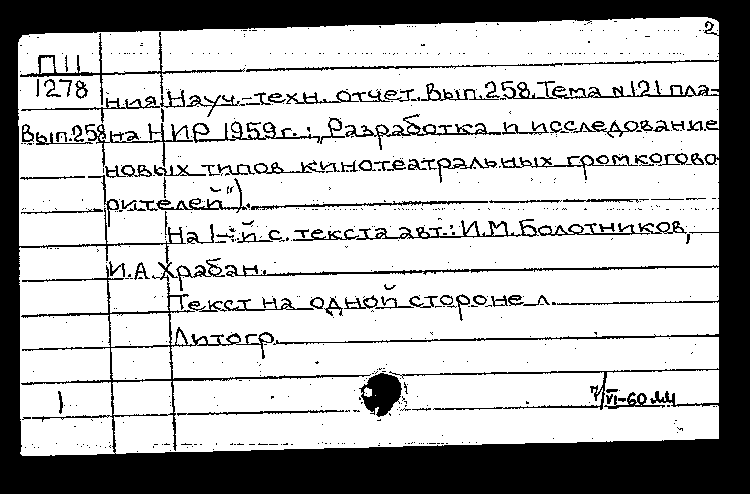 2
П 11
1278
ния Науч.-техн. отчет. Вып.258. Тема №121 пла-
Вып.258 на НИР 1959г.: „Разработка и исследование
новых типов кинотеатральных громкогово-
рителей").
На 1-й с. текста авт.: И.М. Болотников,
И.А. Храбан.
Текст на одной стороне л.
Литогр.
1
7/VI-60 ММ